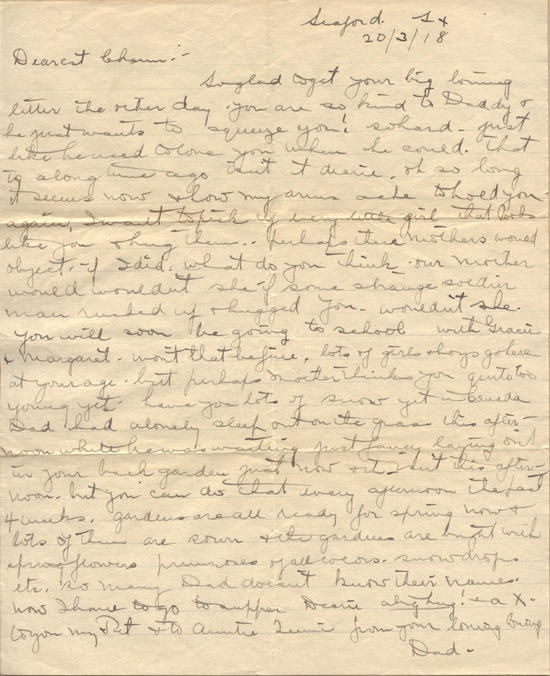 Seaford. Sx
20/3/18
Dearest Chum:-
So glad to get your big loving
letter the other day. you are so kind to Daddy &
he just wants to squeeze you! so hard - just
like he used to love you when he could. That
is a long time ago isn't it dearie, oh so long
it seems now & how my arms ache to hold you
again, I want to pick up every little girl that looks
like you & hug them.. perhaps their mothers would
object, if I did. what do you think. our mother
would wouldn't she if some strange soldier
man rushed up & hugged you - wouldn't she.
you will soon be going to school with Gracie
& Margaret. won't that be fine, lots of girls & boys go here
at your age. but perhaps mother thinks you quite too
young yet. have you lots of snow yet in Canada
Dad had a lovely sleep out on the grass this after-
noon while he was waiting just fancy laying out
in your back garden just now & it isn't this after-
noon. but you can do that every afternoon the past
4 weeks. gardens are all ready for spring now &
lots of them are sown & the gardens are bright with
spring flowers primroses of all colors. snowdrops
etc. so many Dad doesn't know their names.
now I have to go to supper Dearie a big hug! & a X.
to you my Pet & to Auntie from your loving loving
Dad -